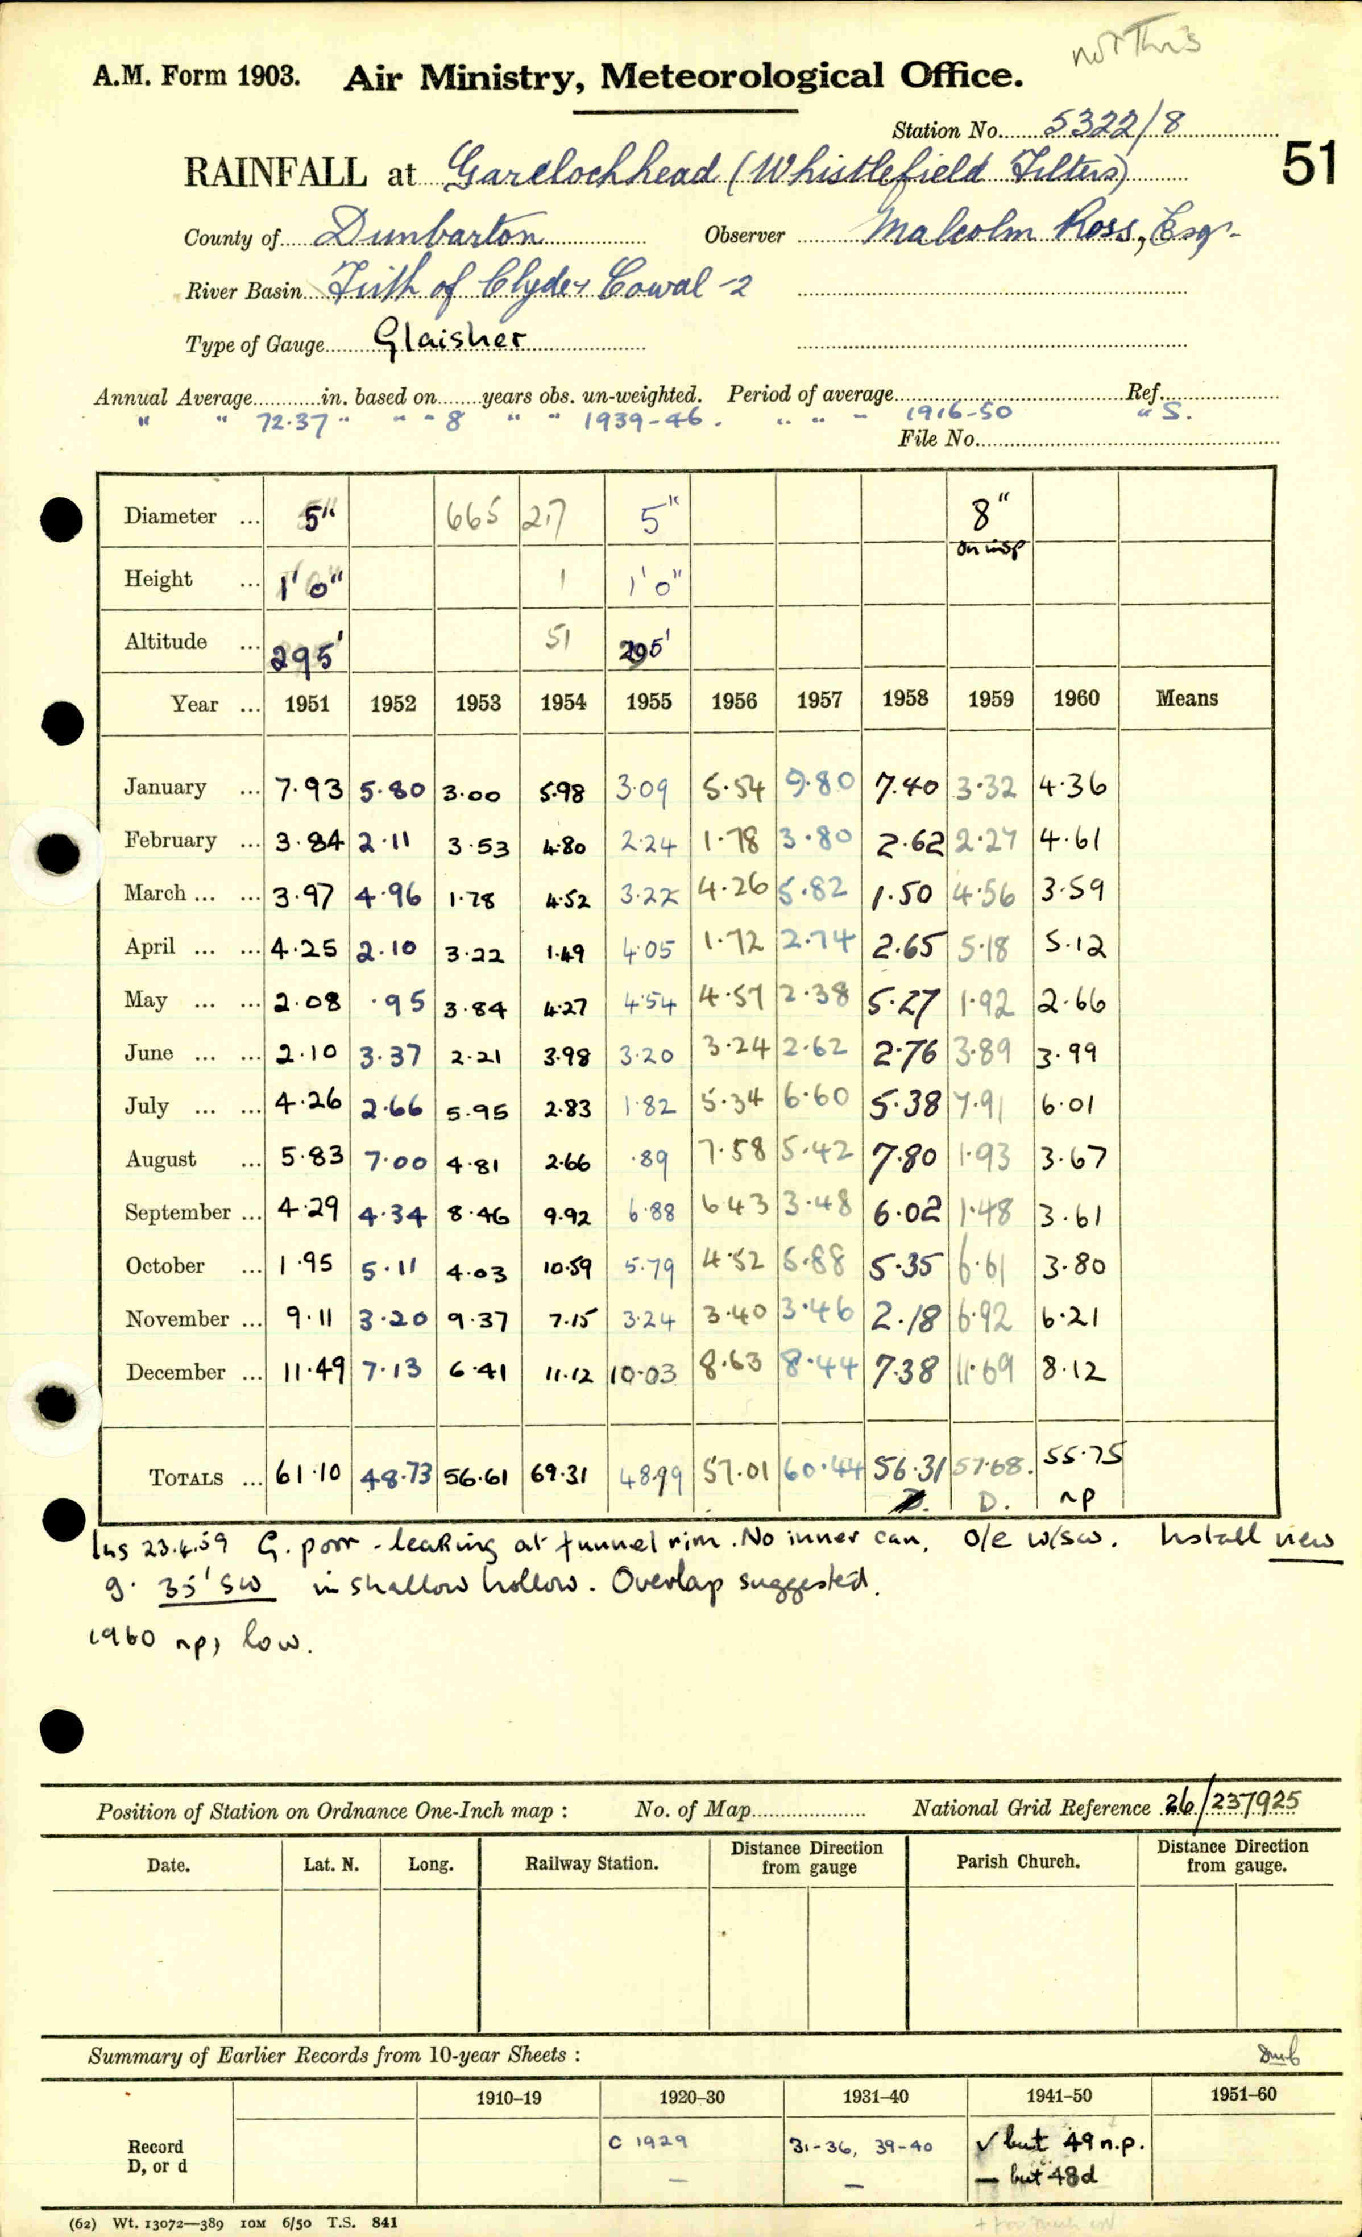 not this
A.M. Form 1903. Air Ministry, Meteorological Office.
Station No. 5322/8
51
RAINFALL at Garelochhead (Whistlefield Filters)
County of Dunbarton Observer Malcolm Ross, Esqr.
River Basin Firth of Clyde, Cowal -2
Type of Gauge Glaisher
Annual Average............in. based on........years obs. un-weighted. Period of average Ref.
" " 72.37 " " " 8 " " 1939-46. " " " 1916-50 " S.
File No.
Diameter ... 5" 665 217 5" 8"
on insp
Height ... 1'0" 1 1'0"
Altitude ... 295' 51 295'
Year ... 1951 1952 1953 1954 1955 1956 1957 1958 1959 1960 Means
January ... 7.93 5.80 3.00 5.98 3.09 5.54 9.80 7.40 3.32 4.36
February ... 3.84 2.11 3.53 4.80 2.24 1.78 3.80 2.62 2.27 4.61
March ... ... 3.97 4.96 1.78 4.52 3.22 4.26 5.82 1.50 4.56 3.59
April ... ... 4.25 2.10 3.22 1.49 4.05 1.72 2.74 2.65 5.18 5.12
May ... ... 2.08 .95 3.84 4.27 4.54 4.57 2.38 5.27 1.92 2.66
June ... ... 2.10 3.37 2.21 3.98 3.20 3.24 2.62 2.76 3.89 3.99
July ... ... 4.26 2.66 5.95 2.83 1.82 5.34 6.60 5.38 7.91 6.01
August ... 5.83 7.00 4.81 2.66 .89 7.58 5.42 7.80 1.93 3.67
September ... 4.29 4.34 8.46 9.92 6.88 6.43 3.48 6.02 1.48 3.61
October ... 1.95 5.11 4.03 10.59 5.79 4.52 5.88 5.35 6.61 3.80
November ... 9.11 3.20 9.37 7.15 3.24 3.40 3.46 2.18 6.92 6.21
December ... 11.49 7.13 6.41 11.12 10.03 8.63 8.44 7.38 11.69 8.12
TOTALS ... 61.10 48.73 56.61 69.31 48.99 57.01 60.44 56.31 57.68. 55.75
D. D. np
Ins 23.4.59 G. poor - leaking at funnel rim. No inner can. o/e w/sw. Install new
g. 35' SW in shallow hollow. Overlap suggested.
1960 np, low.
Position of Station on Ordnance One-Inch map : No. of Map National Grid Reference 26/237925
Date. Lat. N. Long. Railway Station. Distance Direction from gauge Parish Church. Distance Direction from gauge.
Summary of Earlier Records from 10-year Sheets :
1910–19 1920–30 1931–40 1941–50 1951–60
Record C 1929 31-36, 39-40 ✓ but 49 n.p.
D, or d — — — but 48d
(62) Wt. 13072—389 10M 6/50 T.S. 841